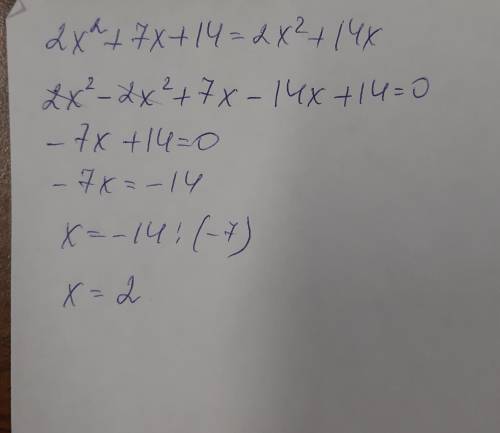 2x²+7x+14=2x²+14x
2x²-2x²+7x-14x+14=0
-7x+14=0
-7x=-14
x=-14:(-7)
x=2